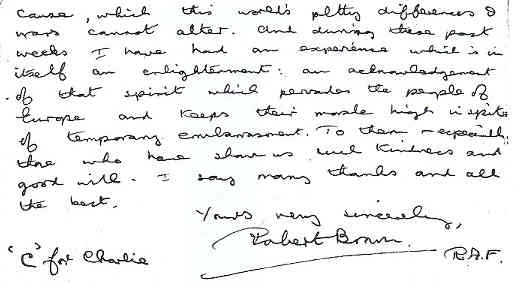 cause, which this world's petty differences &
wars cannot alter. And during these past
weeks I have had an experience which is in
itself an enlightenment: an acknowledgement
of that spirit which pervades the people of
Europe and keeps their morale high in spite
of temporary embarrassment. To them - especially
those who have shown us such kindness and
good will - I say many thanks and all
the best.
Yours very sincerely,
Robert Brown.
"C" for Charlie
R.A.F.